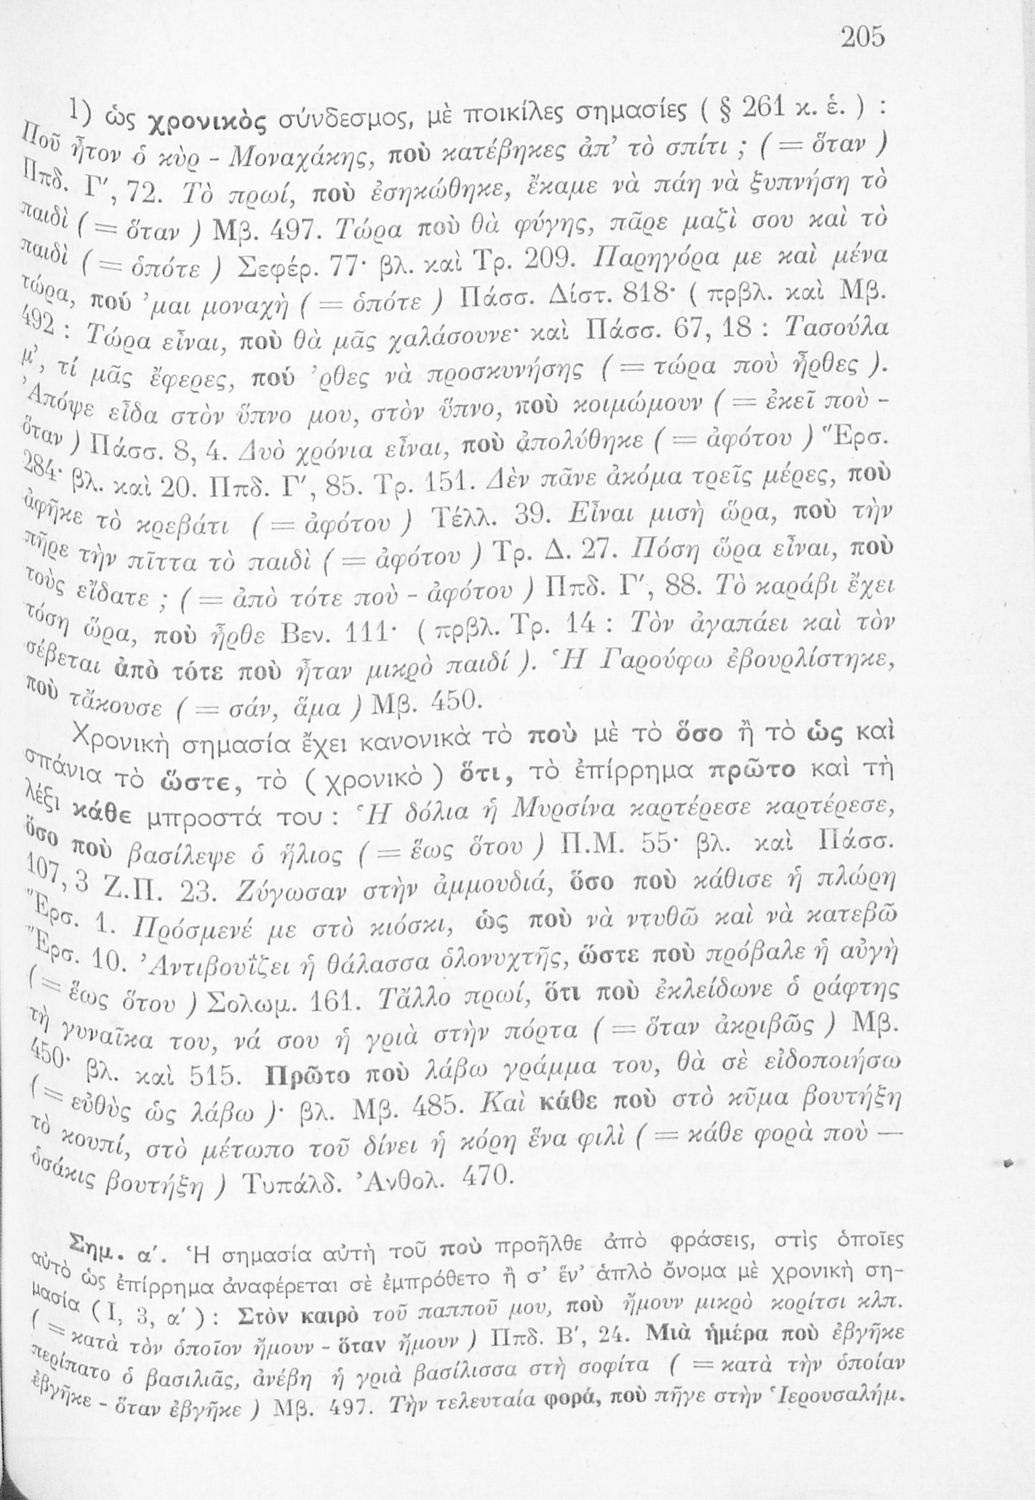 205
1) ὡς χρονικὸς σύνδεσμος, μὲ ποικίλες σημασίες ( § 261 κ. ἑ. ) :
Ποῦ ἦτον ὁ κὺρ - Μοναχάκης, ποὺ κατέβηκες ἀπ’ τὸ σπίτι ; ( = ὅταν )
Ππδ. Γ′, 72. Τὸ πρωί, ποὺ ἐσηκώθηκε, ἔκαμε νὰ πάη νὰ ξυπνήση τὸ
παιδὶ ( = ὅταν ) Μβ. 497. Τώρα ποὺ θὰ φύγης, πᾶρε μαζὶ σου καὶ τὸ
παιδὶ ( = ὁπότε ) Σεφέρ. 77· βλ. καὶ Τρ. 209. Παρηγόρα με καὶ μένα
τώρα, πού ’μαι μοναχὴ ( = ὁπότε ) Πάσσ. Δίστ. 818· ( πρβλ. καὶ Μβ.
492 : Τώρα εἶναι, ποὺ θὰ μᾶς χαλάσουνε· καὶ Πάσσ. 67, 18 : Τασούλα
μ’, τί μᾶς ἔφερες, πού ’ρθες νὰ προσκυνήσης ( = τώρα ποὺ ἦρθες ).
’Απόψε εἶδα στὸν ὕπνο μου, στὸν ὕπνο, ποὺ κοιμώμουν ( = ἐκεῖ ποὺ -
ὅταν ) Πάσσ. 8, 4. Δυὸ χρόνια εἶναι, ποὺ ἀπολύθηκε ( = ἀφότου ) Ἔρσ.
284· βλ. καὶ 20. Ππδ. Γ′, 85. Τρ. 151. Δὲν πᾶνε ἀκόμα τρεῖς μέρες, ποὺ
ἀφῆκε τὸ κρεβάτι ( = ἀφότου ) Τέλλ. 39. Εἶναι μισὴ ὥρα, ποὺ τὴν
πῆρε τὴν πῖττα τὸ παιδὶ ( = ἀφότου ) Τρ. Δ. 27. Πόση ὥρα εἶναι, ποὺ
τοὺς εἴδατε ; ( = ἀπὸ τότε ποὺ - ἀφότου ) Ππδ. Γ′, 88. Τὸ καράβι ἔχει
τόση ὥρα, ποὺ ἦρθε Βεν. 111· ( πρβλ. Τρ. 14 : Τὸν ἀγαπάει καὶ τὸν
σέβεται ἀπὸ τότε ποὺ ἦταν μικρὸ παιδί ). Ἡ Γαρούφω ἐβουρλίστηκε,
ποὺ τἄκουσε ( = σάν, ἅμα ) Μβ. 450.
Χρονικὴ σημασία ἔχει κανονικὰ τὸ ποὺ μὲ τὸ ὅσο ἢ τὸ ὡς καὶ
σπάνια τὸ ὥστε, τὸ ( χρονικὸ ) ὅτι, τὸ ἐπίρρημα πρῶτο καὶ τὴ
λέξι κάθε μπροστά του : Ἡ δόλια ἡ Μυρσίνα καρτέρεσε καρτέρεσε,
ὅσο ποὺ βασίλεψε ὁ ἥλιος ( = ἕως ὅτου ) Π.Μ. 55· βλ. καὶ Πάσσ.
107, 3 Ζ.Π. 23. Ζύγωσαν στὴν ἀμμουδιά, ὅσο ποὺ κάθισε ἡ πλώρη
Ἔρσ. 1. Πρόσμενέ με στὸ κιόσκι, ὡς ποὺ νὰ ντυθῶ καὶ νὰ κατεβῶ
Ἔρσ. 10. ’Αντιβουΐζει ἡ θάλασσα ὁλονυχτῆς, ὥστε ποὺ πρόβαλε ἡ αὐγὴ
( = ἕως ὅτου ) Σολωμ. 161. Τἄλλο πρωί, ὅτι ποὺ ἐκλείδωνε ὁ ράφτης
τὴ γυναῖκα του, νά σου ἡ γριὰ στὴν πόρτα ( = ὅταν ἀκριβῶς ) Μβ.
450· βλ. καὶ 515. Πρῶτο ποὺ λάβω γράμμα του, θὰ σὲ εἰδοποιήσω
( = εὐθὺς ὡς λάβω )· βλ. Μβ. 485. Καὶ κάθε ποὺ στὸ κῦμα βουτήξη
τὸ κουπί, στὸ μέτωπο τοῦ δίνει ἡ κόρη ἕνα φιλὶ ( = κάθε φορὰ ποὺ —
ὁσάκις βουτήξη ) Τυπάλδ. ’Ανθολ. 470.
Σημ. α′. Ἡ σημασία αὐτὴ τοῦ ποὺ προῆλθε ἀπὸ φράσεις, στὶς ὁποῖες
αὐτὸ ὡς ἐπίρρημα ἀναφέρεται σὲ ἐμπρόθετο ἢ σ’ ἕν’ ἁπλὸ ὄνομα μὲ χρονικὴ ση-
μασία ( Ι, 3, α′ ) : Στὸν καιρὸ τοῦ παπποῦ μου, ποὺ ἤμουν μικρὸ κορίτσι κλπ.
( = κατὰ τὸν ὁποῖον ἤμουν - ὅταν ἤμουν ) Ππδ. Β′, 24. Μιὰ ἡμέρα ποὺ ἐβγῆκε
περίπατο ὁ βασιλιᾶς, ἀνέβη ἡ γριὰ βασίλισσα στὴ σοφίτα ( = κατὰ τὴν ὁποίαν
ἐβγῆκε - ὅταν ἐβγῆκε ) Μβ. 497. Τὴν τελευταία φορά, ποὺ πῆγε στὴν Ἱερουσαλήμ.